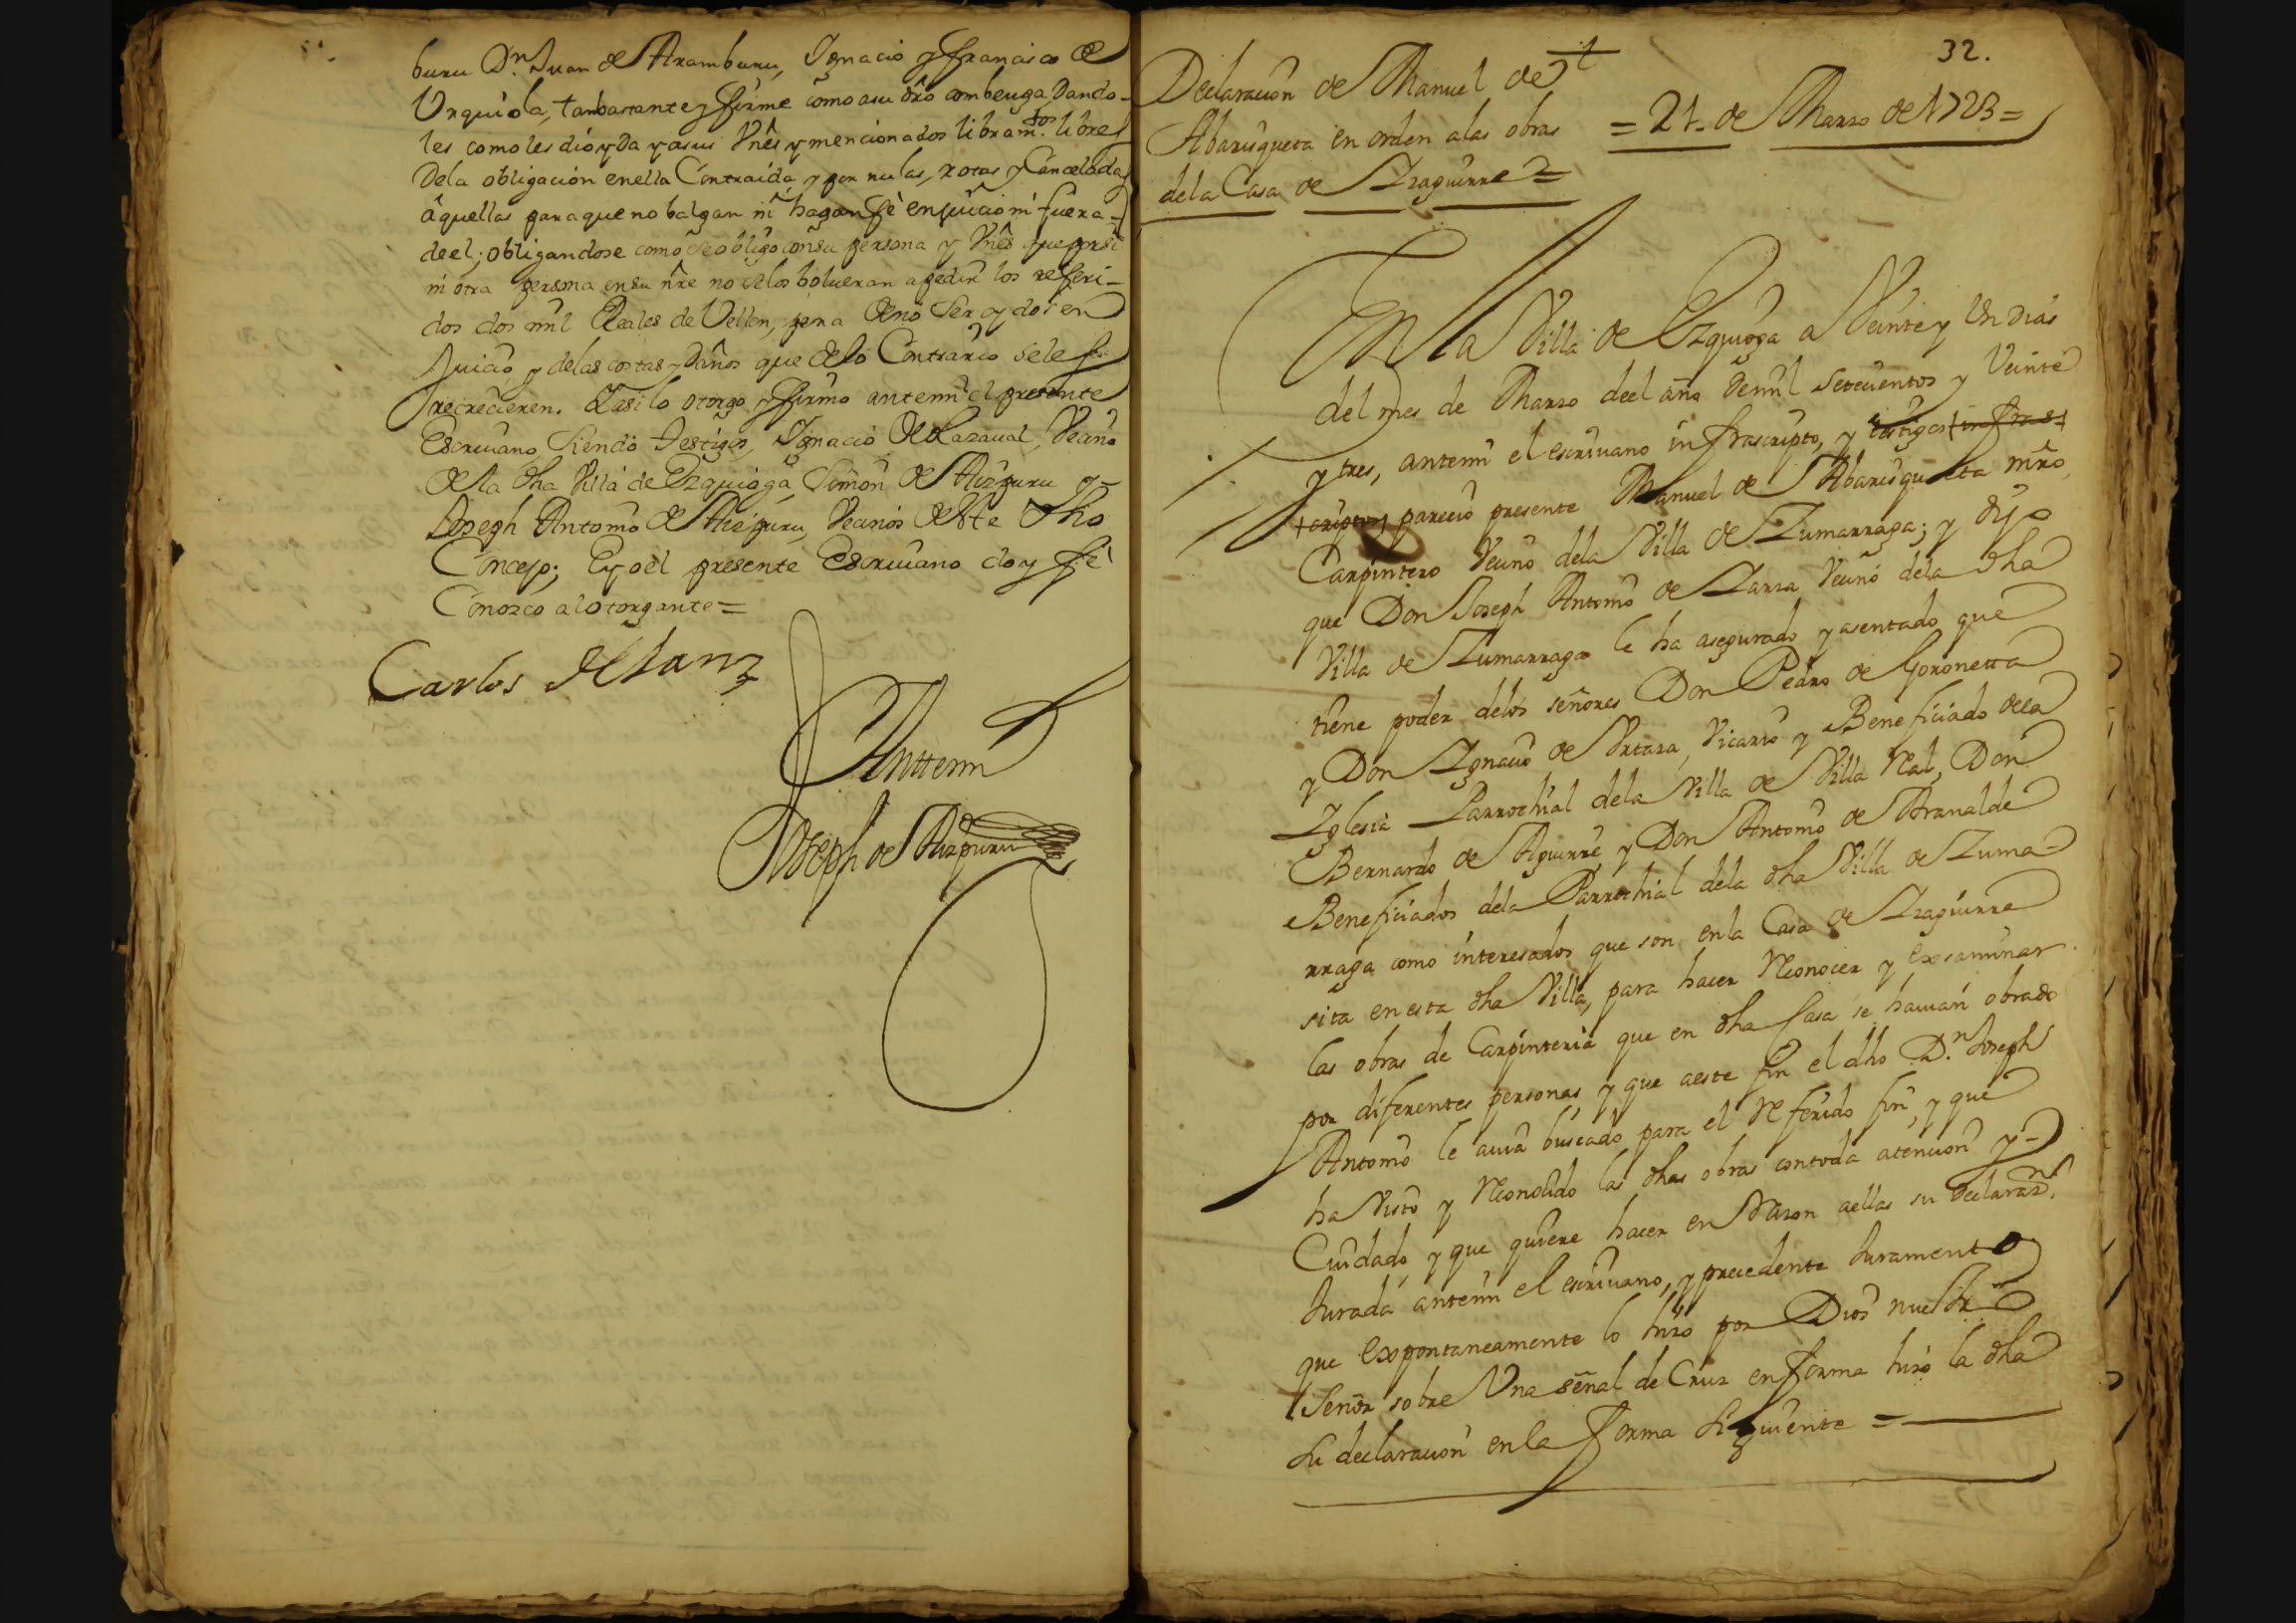 buru Dn. Juan de Aramburu, Ygnacio y Francisco de
Urquiola, tanbastante y firme como a su dro combenga Dando-
les como les dió y Da y a sus Vnes y mencionados libramtos. libres
Dela obligacion enella Contraida, y por nulas, rotas y Canceladas
aquellas paraque no balgan ni hagan fè enjuicio ni fuera-
de el; obligandose como se obligo con su persona y Vnes que por si
ni otra persona en su nre no selos bolueran apedir los referi-
dos dos mil Reales de Vellon, pena de no ser oydos en
Juicio, y delas costas y Daños que delo Contrario sele s
recrecieren. Y asi lo otorgo, y firmo antemi el presente
Escriuano, siendo testigos, Ygnacio de Lazaual, Vecino
desta dha Villa de Ezquioga, Simon de Aizpuru y-
Joseph Antonio de Aizpuru, Vecinos deste dho
Concejo; Eyo el presente Escriuano doy fè
Conozco alotorgante=
Carlos de
Anttemi
Joseph de Aizpuru
32.
Declaracion de Manuel de
Abarisqueta en orden alas obras
dela Casa de Yzaguirre=
=21. de Marzo de 1723=
En la Villa de Ezquioga a Veinte y Vn dias
del mes de Marzo deel año demil setecientos y Veinte
y tres, antemi el escriuano infrascripto, y testigos infras
criptos pareció presente Manuel de Abarisqueta mro
Carpintero Vecino dela Villa de Zumarraga; y dijo
que Don Joseph Antonio de Yzarra Vecino dela dha
Villa de Zumarraga le ha asegurado y asentado que
tiene poder delos señores Don Pedro de Goronetta
y Don Ygnacio de Vrtaza, Vicario y Beneficiado dela
Yglesia Parrochial dela Villa de Villa Real, Don
Bernardo de Aguirre, y Don Antonio de Aranalde
Beneficiados dela Parrochial dela dha Villa de Zuma-
rraga como interesados que son enla Casa de Yzaguirre
sita en esta dha Villa, para hacer Reconocer y Examinar
las obras de Carpinteria que en dha Casa se hauian obrado
por diferentes personas, y que aeste fin el dho Dn. Joseph
Antonio le auia buscado para el Referido fin, y que
ha Visto y Reconocido las dhas obras contoda atencion y-
Cuidado, y que quiere hacer en Razon aellas su declarazn.
Jurada antemi el escriuano, y precedente Juramento
que Expontaneamente lo hizo por Dios nuestro
Señor sobre Una señal de Cruz enforma hizo la dha
su declaracion enla forma siguiente =